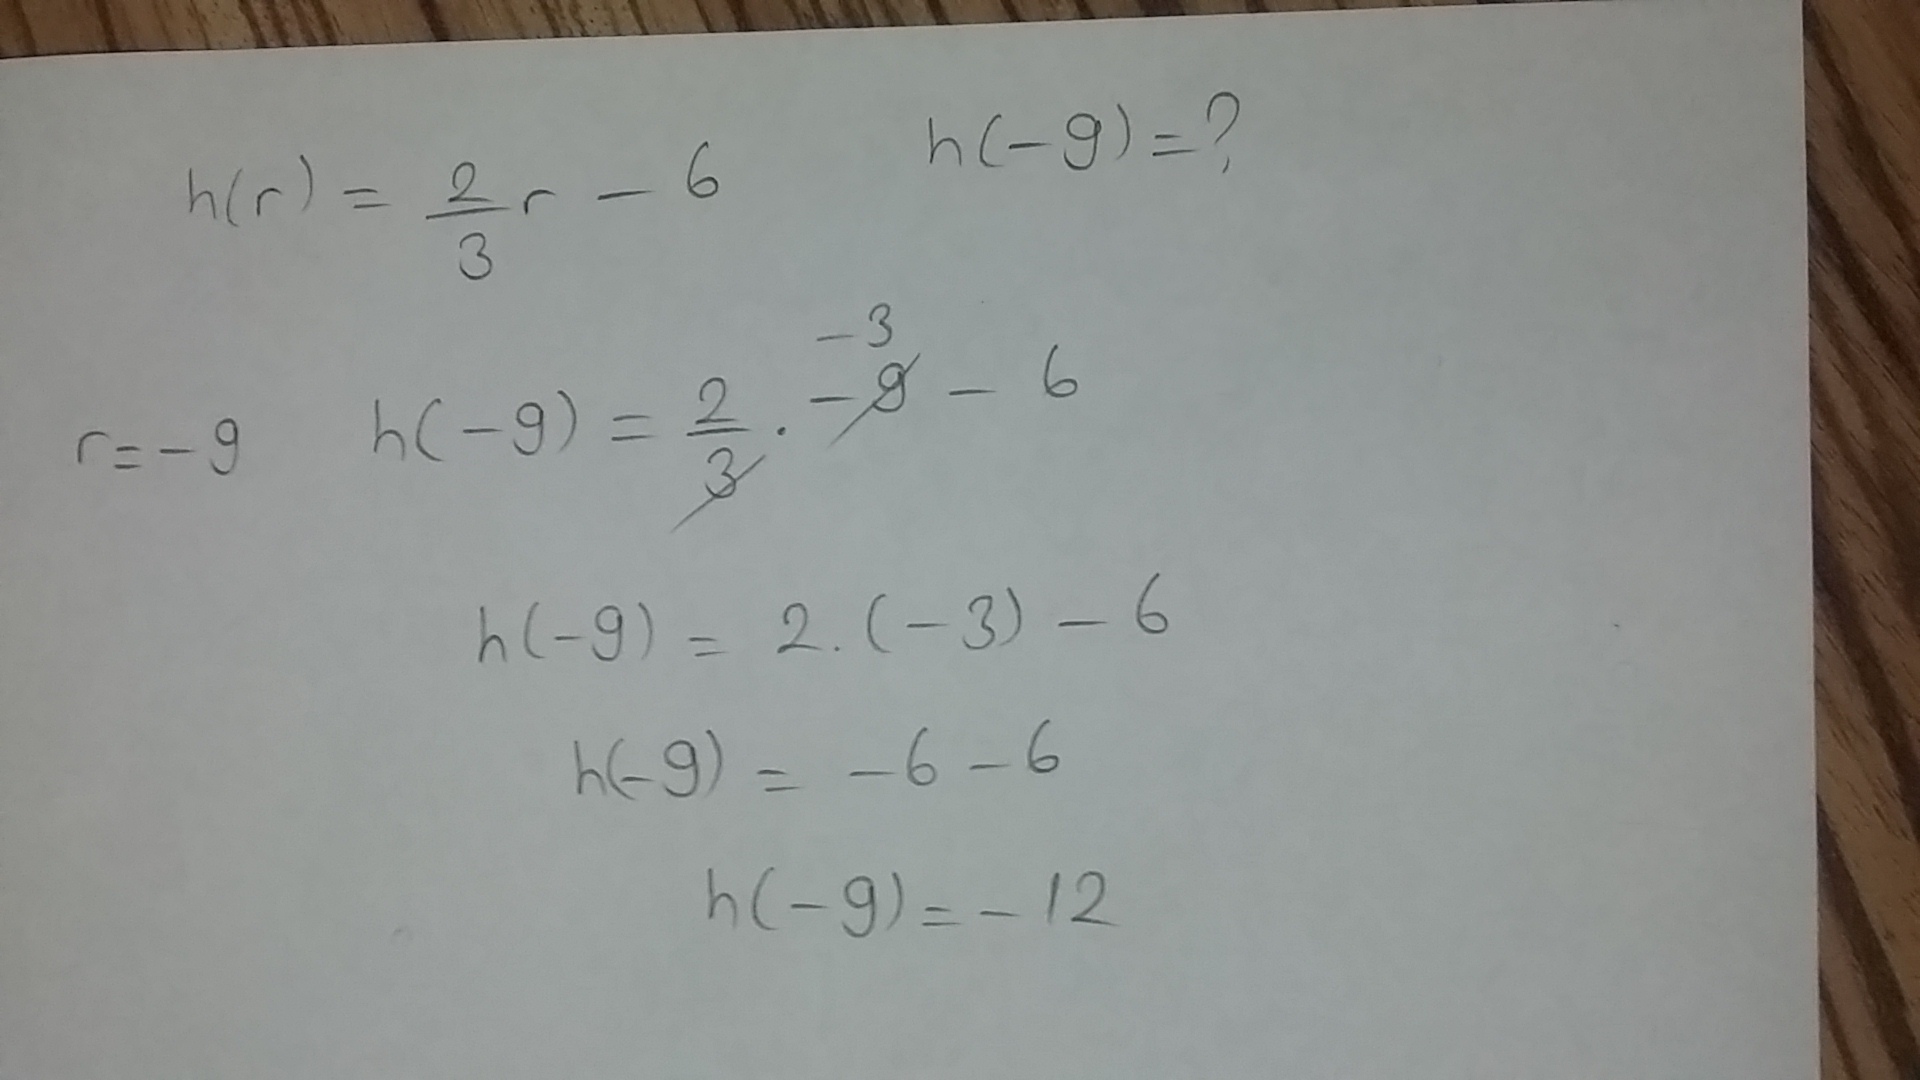 h(r) = 2/3 r - 6    h(-9) = ?
-3
r = -9    h(-9) = 2/3 . -9 - 6
h(-9) = 2. (-3) - 6
h(-9) = -6 - 6
h(-9) = -12